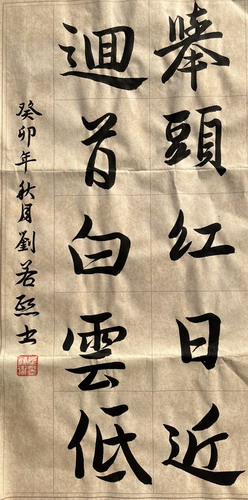 舉頭紅日近
迴首白雲低
癸卯年秋月劉若熙書